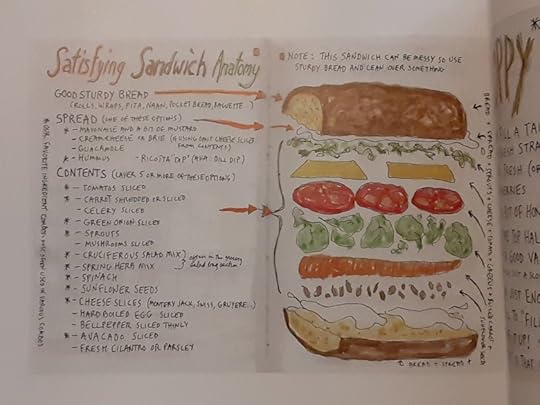 Satisfying Sandwich Anatomy
GOOD STURDY BREAD
(ROLLS, WRAPS, PITA, NAAN, POCKET BREAD, BAGUETTE..)
SPREAD (ONE OF THESE OPTIONS)
* - MAYONAISE AND A BIT OF MUSTARD
- CREAMCHEESE OR BRIE (IF USING OMIT CHEESE SLICES
FROM CONTENTS)
- GUACAMOLE
* - HUMOUS - "RICOTTA DIP" (AKA: DILL DIP)
CONTENTS (LAYER 5 OR MORE OF THESE OPTIONS)
* - TOMATOS SLICED
* - CARROT SHREDDED OR SLICED
- CELERY SLICED
* - GREEN ONION SLICED
* - SPROUTS
- MUSHROOMS SLICED
* - CRUCIFEROUS SALAD MIX
* - SPRING HERB MIX
* - SPINACH
* - SUNFLOWER SEEDS
* - CHEESE SLICES (MONTEREY JACK, SWISS, GRUYERE...)
- HARD BOILED EGG SLICED
- BELLPEPPER SLICED THINLY
* - AVACADO SLICED
- FRESH CILANTRO OR PARSLEY
* OUR FAVORITE INGREDIENT COMBO
NOTE: THIS SANDWICH CAN BE MESSY SO USE
STURDY BREAD AND LEAN OVER SOMETHING
BREAD + SPREAD + SPROUTS + CHEESE + TOMATO + GREENS + SLICED CARROT +
SUNFLOWER SEED
BREAD + SPREAD +
PPY
FRESH
BERRIES
BIT OF HON